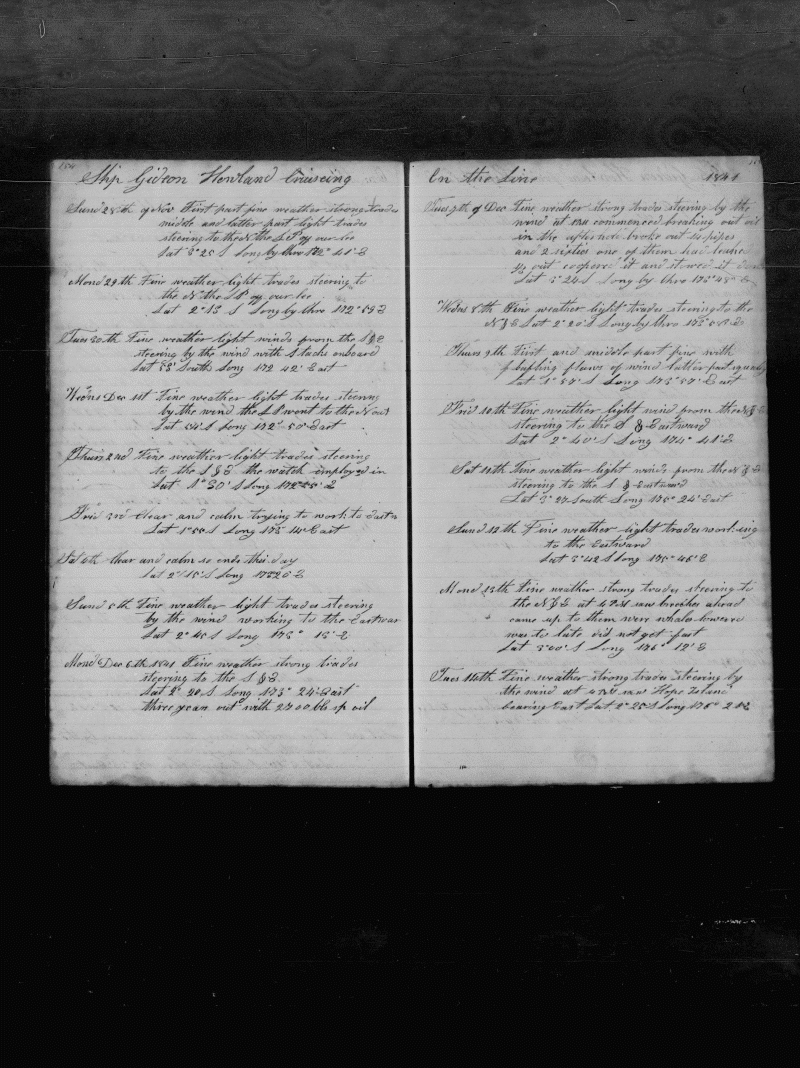 Ship Gideon Howland Cruiseing
Sund 28th of Nov First part fine weather strong trades
middle and latter part light trades
steering to the N the SP of our lee
Lat 3° 25 S Long by thro 172° 41' E
Mond 29th Fine weather light trades steering to
the N the SP of our lee
Lat 2° 13 S Long by thro 172° 59 E
Tues 30th Fine weather light winds from the S & E
steering by the wind with S tacks onboard
Lat 53' South Long 172 42' East
Wedns Dec 1st Fine weather light trades steering
by the wind the SP went to the N
Lat S Long 172° 50' East
Thurs 2nd Fine weather light trades steering
to the S & E the watch employed in
Lat 1° 30' S Long 172
Frid 3rd Clear and calm trying to work to East
Lat 1° 55 S Long 173 14' East
Sat 4th Clear and calm so ends this day
Lat 2° 15' S Long 173 20 E
Sund 5th Fine weather light trades steering
by the wind working to the Eastwar
Lat 2° 45 S Long 173° 13' E
Mond Dec 6th 1841 Fine weather strong trades
steering to the S & E
Lat 2° 20 S Long 173° 24' East
three years out with 2700 bls sp oil
On the Line 1841
Tues 7th of Dec Fine weather strong trades steering by the
wind at commenced breaking out oil
in the after hole broke out 14 pipes
and 2 sixties one of them had leaked
out coopered it and stowed it down
Lat 3° 24 S Long by thro 173° 48' E
Wedns 8th Fine weather light trades steering to the
N & E Lat 2° 20' S Long by thro 173°
Thurs 9th First and middle part fine with
baffling flaws of wind latter part squaly
Lat 1° 57' S Long 173° 57' East
Frid 10th Fine weather light wind from the N & E
steering to the S & Eastward
Lat 2° 40' S Long 174° 41' E
Sat 11th Fine weather light winds from the N & E
steering to the S & Eastward
Lat 3° 27 South Long 175° 24' East
Sund 12th Fine weather light trades working
to the Eastward
Lat 3° 42 S Long 175° 46' E
Mond 13th Fine weather strong trades steering to
the N & E at 4 PM saw breeches ahead
came up to them were whales lowered
was to late did not get fast
Lat 3° 00' S Long 176° 12' E
Tues 14th Fine weather strong trades steering by
the wind at 4 PM saw Hope Island
bearing East Lat 2° 25 S Long 176°